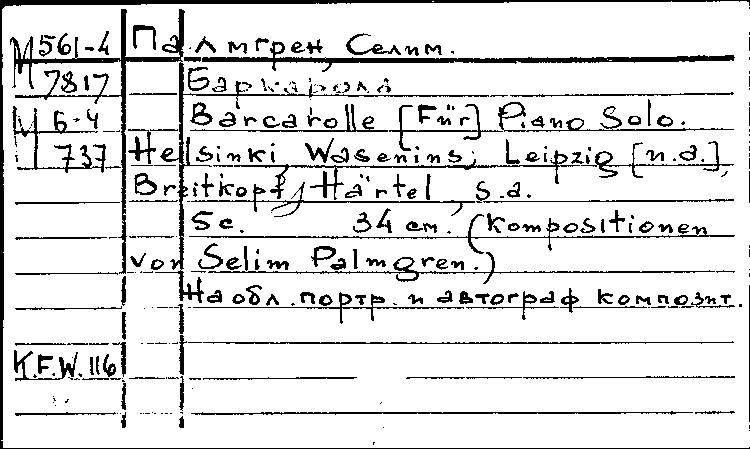 М 561-4 Палмгрен, Селим.
7817 Баркарола
М Б-4 Barcarolle [Für] Piano Solo.
737 Helsinki, Wasenins; Leipzig [u.a.],
Breitkopf, Härtel, s.a.
5 с. 34 см. (Kompositionen
von Selim Palmgren.)
На обл. портр. и автограф композит.
K.F.W. 116